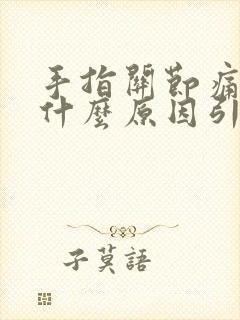 手指關節痛
什麼原因引
子莫語